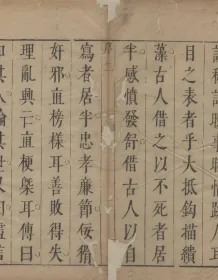 目之表者乎大抵鈎描
藻古人借之以不死者居
半感憤發舒借古人以自
序
寫者居半忠孝廉節
奸邪直榜樣耳善敗得失
理亂興亡直梗槩耳傳曰
知其人論其世又曰